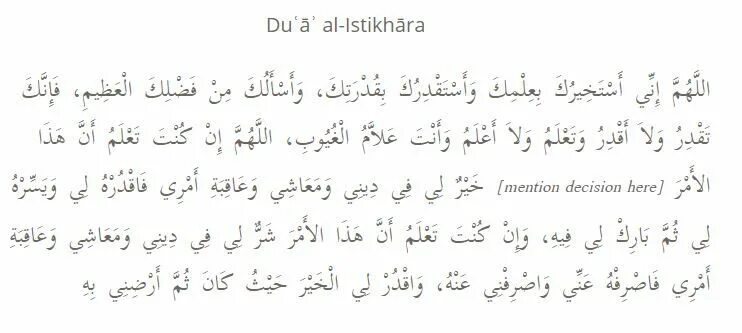 Duʿāʾ al-Istikhāra
اللَّهُمَّ إِنِّي أَسْتَخِيرُكَ بِعِلْمِكَ وَأَسْتَقْدِرُكَ بِقُدْرَتِكَ، وَأَسْأَلُكَ مِنْ فَضْلِكَ الْعَظِيمِ، فَإِنَّكَ
تَقْدِرُ وَلاَ أَقْدِرُ وَتَعْلَمُ وَلاَ أَعْلَمُ وَأَنْتَ عَلاَّمُ الْغُيُوبِ، اللَّهُمَّ إِنْ كُنْتَ تَعْلَمُ أَنَّ هَذَا
الأَمْرَ [mention decision here] خَيْرٌ لِي فِي دِينِي وَمَعَاشِي وَعَاقِبَةِ أَمْرِي فَاقْدُرْهُ لِي وَيَسِّرْهُ
لِي ثُمَّ بَارِكْ لِي فِيهِ، وَإِنْ كُنْتَ تَعْلَمُ أَنَّ هَذَا الأَمْرَ شَرٌّ لِي فِي دِينِي وَمَعَاشِي وَعَاقِبَةِ
أَمْرِي فَاصْرِفْهُ عَنِّي وَاصْرِفْنِي عَنْهُ، وَاقْدُرْ لِي الْخَيْرَ حَيْثُ كَانَ ثُمَّ أَرْضِنِي بِهِ